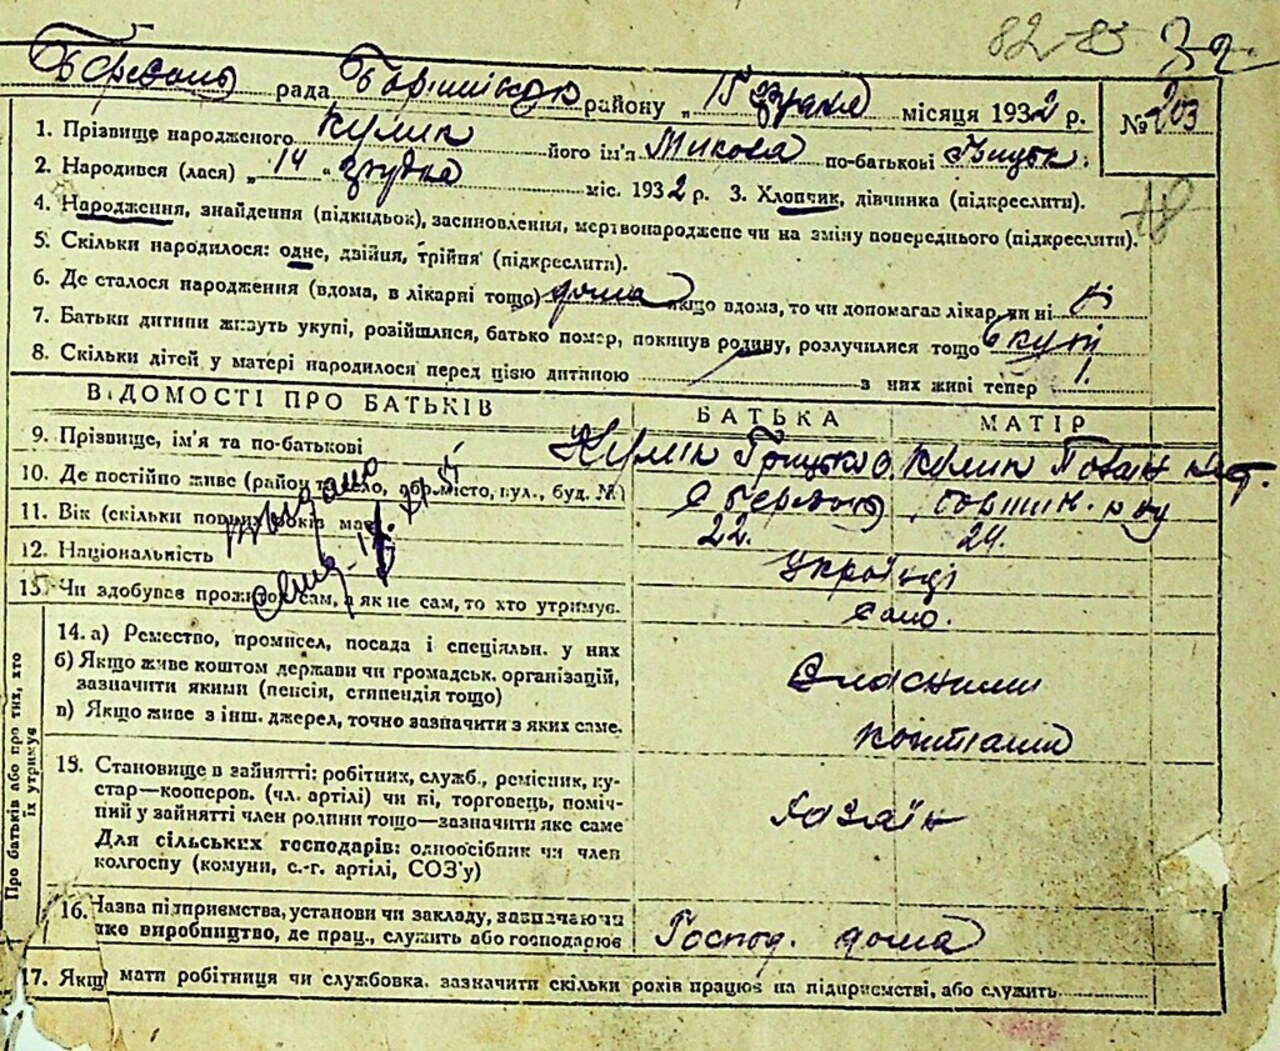 82-85
рада району „15 грудня місяця 1932 р. № 203
1. Прізвище народженого Кулик його ім'я Микола по-батькові Грицьк.
2. Народився (лася) „14 " грудня міс. 1932 р. 3. Хлопчик, дівчинка (підкреслити).
18
4. Народження, знайдення (підкидьок), засиновлення, мертвонароджене чи на зміну попереднього (підкреслити).
5. Скільки народилося: одне, двійня, трійня (підкреслити).
6. Де сталося народження (вдома, в лікарні тощо) дома якщо вдома, то чи допомагав лікар чи ні ні
7. Батьки дитини живуть укупі, розійшлися, батько помер, покинув родину, розлучилися тощо вкупі
8. Скільки дітей у матері народилося перед цією дитиною — з них живі тепер 1.
ВІДОМОСТІ ПРО БАТЬКІВ БАТЬКА МАТІР
9. Прізвище, ім'я та по-батькові Кулик Грицько О. Кулик
10. Де постійно живе (район та село, або місто, вул., буд. №)
11. Вік (скільки повних років має) 22. 24.
12. Національність Українці
13. Чи здобував прожиток сам, а як не сам, то хто утримує. Само.
Про батьків або про тих, хто їх утримує
14. а) Ремество, промисел, посада і спеціальн. у них
б) Якщо живе коштом держави чи громадськ. організацій, Власними
зазначити якими (пенсія, стипендія тощо)
в) Якщо живе з інш. джерел, точно зазначити з яких саме. коштами
15. Становище в зайнятті: робітник, служб., ремісник, ку-
стар—кооперов. (чл. артілі) чи ні, торговець, поміч-
ний у зайнятті член родини тощо—зазначити яке саме Хазаїн
Для сільських господарів: одноосібник чи член
колгоспу (комуни, с.-г. артілі, СОЗ'у)
16. Назва підприємства, установи чи закладу, зазначаючи
яке виробництво, де прац., служить або господарює Господ. дома
17. Якщо мати робітниця чи службовка, зазначити скільки років працює на підприємстві, або служить